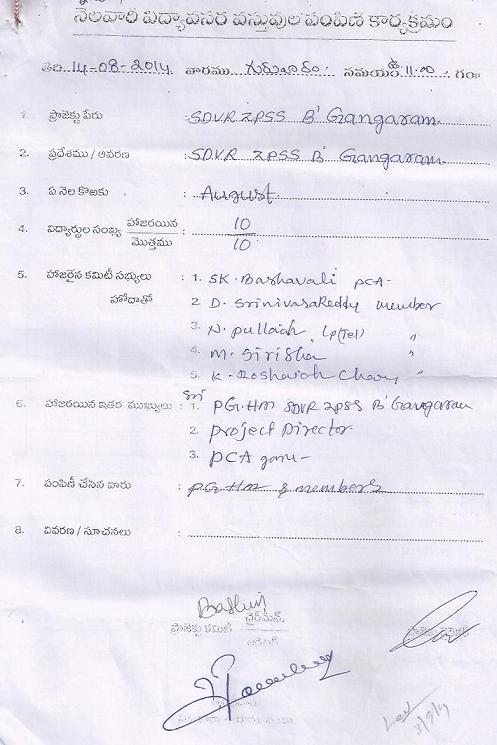 నెలవారి విద్యావసర వస్తువుల పంపిణి కార్యక్రమం
తేది 14-08-2014. వారము గురువారం. సమయం ఉ 11.00 గం॥
1. ప్రాజెక్టు పేరు : SDVR ZPSS B' Gangaram.
2. ప్రదేశము / ఆవరణ : SDVR ZPSS B' Gangaram.
3. ఏ నెల కొఱకు : August.
4. విద్యార్థుల సంఖ్య హాజరయిన / మొత్తము : 10 / 10
5. హాజరైన కమిటీ సభ్యులు : 1. SK. Bashavali PCA-
హోదాతో 2. D. SrinivasaReddy member
3. N. pullaiah, Lp(Tel) "
4. M. Sirisha "
5. K. Roshaiah Chary "
6. హాజరయిన ఇతర ముఖ్యులు : 1. PG.HM SDVR ZPSS B' Gangaram
2. Project Director.
3. PCA garu-
7. పంపిణీ చేసిన వారు : PG.HM & members
8. వివరణ / సూచనలు :
ఛైర్మెన్.
ప్రాజెక్టు కమిటీ
3/9/14